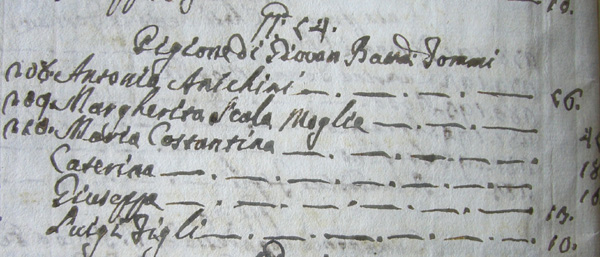 10.
54.
Pigione di Giovan Batta: Tommi
208. Antonio Anichini 56.
209. Margherita Scala Moglie 4
210. Maria Costantina 18
Caterina 16
Giuseppa 13.
Luigi Figli 10.